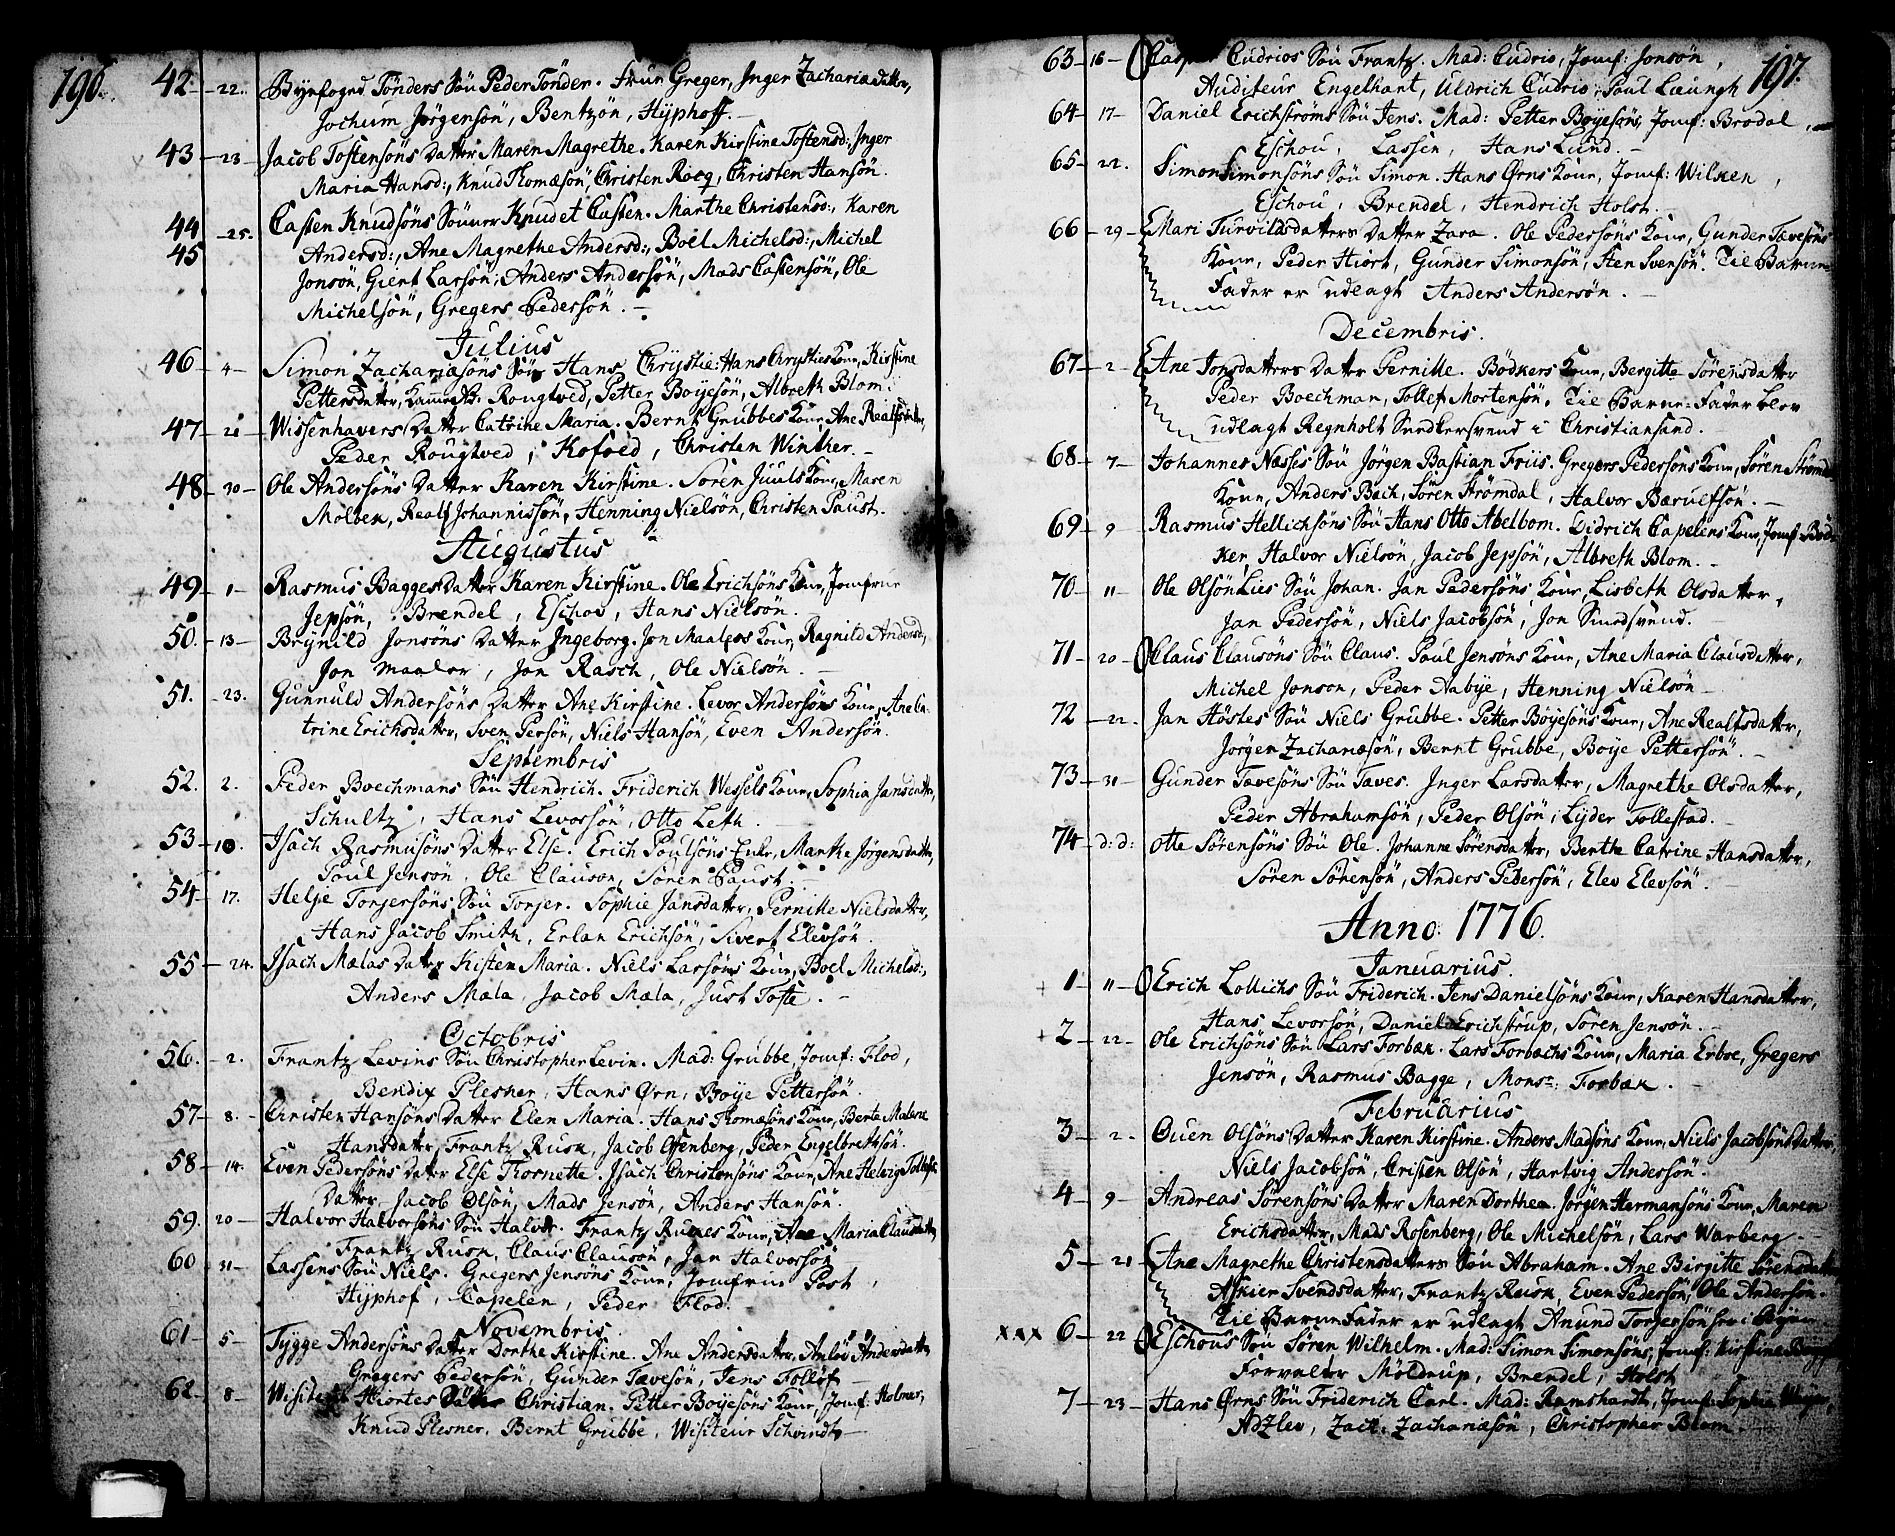 196.
42 – 22. Byefoged Tönders Sön Peder Tönder. Frue Greger, Inger Zachariædatter,
Jochum Jörgensön, Bentzön, Hyphoff. –
43 – 23 – Jacob Tostensöns Datter Maren Magrethe. Karen Kirstine Tostensd:, Inger
Maria Hansd:, Knud Thomæsön, Christen Rocq, Christen Hansön.
44 Casten Knudsöns Sönner Knud et Casten. Marthe Christensd:, Karen
45 – 25. Andersd:, Ane Magrethe Andersd:, Boel Michelsd:, Michel
Jonsön, Giert Larsön, Anders Andersön, Mads Castensön, Ole
Michelsön, Gregers Pedersön. –
Julius
46 – 4 – Simon Zachariæsöns Sön Hans Chrystie: Hans Chrysties Kone, Kirstine
Pettersdatter, Rougtved, Petter Boyesön, Albreth Blom.
47 – 21 – Wissenhavers Datter Catrine Maria. Bernt Grubbes Kone, Ane Realfsdatter,
Peder Rougtved, Kofoed, Christen Winther. –
48 – 30 – Ole Andersöns Datter Karen Kirstine. Sören Juuls Kone, Maren
Molbek, Realf Johannissön, Henning Nielsön, Christen Paust.
Augustus
49 – 1 – Rasmus Bagges Datter Karen Kirstine. Ole Erichsöns Kone, Jomfrue
Jepsön, Brendel, Eschou, Hans Nielsön. –
50. – 13 – Brynild Jonsöns Datter Ingeborg. Jon Maalers Kone, Ragnild Andersd:,
Jon Maaler, Jon Rasch, Ole Nielsön. –
51. – 23. Gunnuld Andersöns Datter Ane Kirstine. Levor Andersöns Kone, Ane Ca-
trine Erichsdatter, Sven Persön, Niels Hansön, Even Andersön.
Septembris
52. 2. Peder Boechmans Sön Hendrich. Friderich Wessels Kone, Sophia Jansdatter,
Schultz, Hans Levorsön, Otto Leth. –
53 – 10. Isach Rasmusöns Datter Else. Erich Poulsöns Enke, Marthe Jörgensdatter,
Poul Jensön, Ole Clauson, Sören Paust.
54 – 17. Helje Torjersöns Sön Torjer. Sophie Jansdatter, Pernille Nielsdatter,
Hans Jacob Smith, Erlan Erichsön, Sivert Elevsön.
55 – 24. Isach Mælas Datter Kisten Maria. Niels Larsöns Kone, Boel Michelsd:,
Anders Mæla, Jacob Mæla, Just Toste. –
Octobris
56. – 2. Frantz Levins Sön Christopher Levin. Mad: Grubbe, Jomf: Flod,
Bendix Plesner, Hans Ørn, Boye Pettersön.
57 – 8. – Christen Hansöns Datter Elen Maria. Hans Thomæsöns Kone, Berte Malene
Hansdatter, Frantz Rusk, Jacob Ofsenberg, Peder Engelbretzön.
58 – 14. Even Pedersöns Datter Else Thornette. Isach Christensöns Kone, Ane Helvig Tollefs
Datter, Jacob Olsön, Mads Jensön, Anders Hansön.
59. 20 – Halvor Halvorsöns Sön Halvor. Frantz Ruskes Kone, Ane Maria Clausdatter,
Frantz Rusk, Claus Clausön, Jan Halvorsön
60 – 31 – Lassens Sön Niels. Gregers Jensöns Kone, Jomfrue Post,
Hyphof, Capelen, Peder Flod.
Novembris.
61 – 5 – Tygge Andersöns Datter Dorthe Kirstine. Ane Andersdatter, Anlöv Andersdatter,
Gregers Pedersön, Gunder Tævesön, Jens Tollof –
62 – 8 – Wisiteur Hiortes Christian. Petter Boyesöns Kone, Jomf: Holmer,
Knud Plesner, Bernt Grubbe, Wisiteur Schvindt –
197.
63 – 16 – Casper Cudrios Sön Frantz. Mad: Cudrio, Jomf: Jonsön,
Auditeur Engelhart, Uldrich Cudrio, Poul Læungh
64 – 17 – Daniel Erichströms Sön Jens. Mad: Petter Boyesöns, Jomf: Brodal,
Eschou, Lassen, Hans Lund. –
65 – 22. Simon Simonsöns Sön Simon. Hans Ørns Kone, Jomf: Wilken,
Eschou, Brendel, Hendrich Holst. –
66 – 29 – Mari Turvildsdatters Datter Zara. Ole Pedersöns Kone, Gunder Tævesöns
Kone, Peder Hiort, Gunder Simonsön, Sten Svensön. Til Barne-
Fader er udlagt Anders Andersön. –
Decembris.
67 – 2 – Ane Jonsdatters Datter Pernille. Bödkers Kone, Bergitte Sörensdatter
Peder Boechman, Tollef Mortensön. Til Barne-Fader blev
udlagt Regnholt Snedkersvend i Christiansand.
68 – 7 – Johannes Næsses Sön Jörgen Bastian Friis. Gregers Pedersöns Kone, Sören Strömdals
Kone, Anders Bach, Sören Strömdal, Halvor Bærulfsön. –
69 – 9 Rasmus Hellichsöns Sön Hans Otto Abelborn. Didrich Capelens Kone, Jomf: Böd-
ker, Halvor Nielsön, Jacob Jepsön, Albreth Blom. –
70 – 11 – Ole Olsön Lies Sön Johan. Jan Pedersöns Kone, Lisbeth Olsdatter,
Jan Pedersön, Niels Jacobsön, Jon Smedsvend.
71 – 20 – Claus Clausöns Sön Claus. Poul Jensöns Kone, Ane Maria Clausdatter,
Michel Jonson, Peder Aabye, Henning Nielsön –
72 – 22. Jan Höstes Sön Niels Grubbe. Petter Boyesöns Kone, Ane Realfsdatter,
Jörgen Zachariæsön, Bernt Grubbe, Boye Pettersön. –
73 – 31 – Gunder Tævesöns Sön Tæves. Inger Larsdatter, Magrethe Olsdatter,
Peder Abrahamsön, Peder Olsön, Lyder Tollestad. –
74 – d: d: Otte Sörensöns Sön Ole. Johanne Sörensdatter, Berthe Catrine Hansdatter,
Sören Sörensön, Anders Pedersön, Elev Elevsön. –
Anno 1776.
Januarius.
1 – 11 – Erich Lollichs Sön Friderich. Jens Danielsöns Kone, Karen Hansdatter,
Hans Levorsön, Daniel Erichstrup, Sören Jensön. –
2 – 22 – Ole Erichsöns Sön Lars Forbæk. Lars Forbæchs Kone, Maria Erboe, Gregers
Jensön, Rasmus Bagge, Monsr: Forbæk. –
Februarius
3 – 2. Ouen Olsöns Datter Karen Kirstine. Anders Madsöns Kone, Niels Jacobsöns Datter,
Niels Jacobsön, Cristen Olsön, Hartvig Andersön. –
4 – 9 – Andreas Sörensöns Datter Maren Dorthea. Jörgen Hermansöns Kone, Maren
Erichsdatter, Mads Rosenberg, Ole Michelsön, Lars Warberg –
5 – 21 – Ane Magrethe Christensdatters Sön Abraham. Ane Birgitte Sörensdatter,
Askier Svendsdatter, Frantz Rusk, Even Pedersön, Ole Andersön.
Til Barne Fader er udlagt Anund Torjersön her i Byen.
xxx 6 – 22 Eschous Sön Sören Wilhelm. Mad: Simon Simonsöns, Jomf: Kirstine
Forvalter Möldrup, Brendel, Holst
7 – 23 – Hans Ørns Sön Friderich Carl. Mad: Ramshardt, Jomf: Sophie
Adzlev, Zach: Zachariæsön, Christopher Blom. –